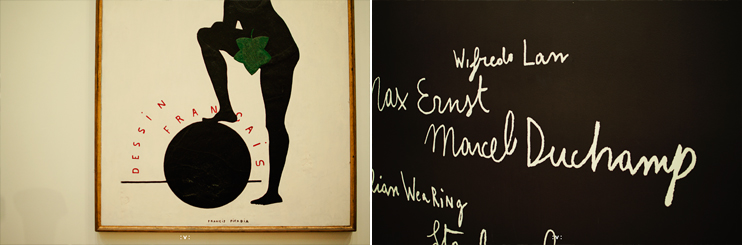 DESSIN
FRANÇAIS
FRANCIS PICABIA
:v:
Wifredo Lam
Max Ernst
Marcel Duchamp
lian Wearing
:v: